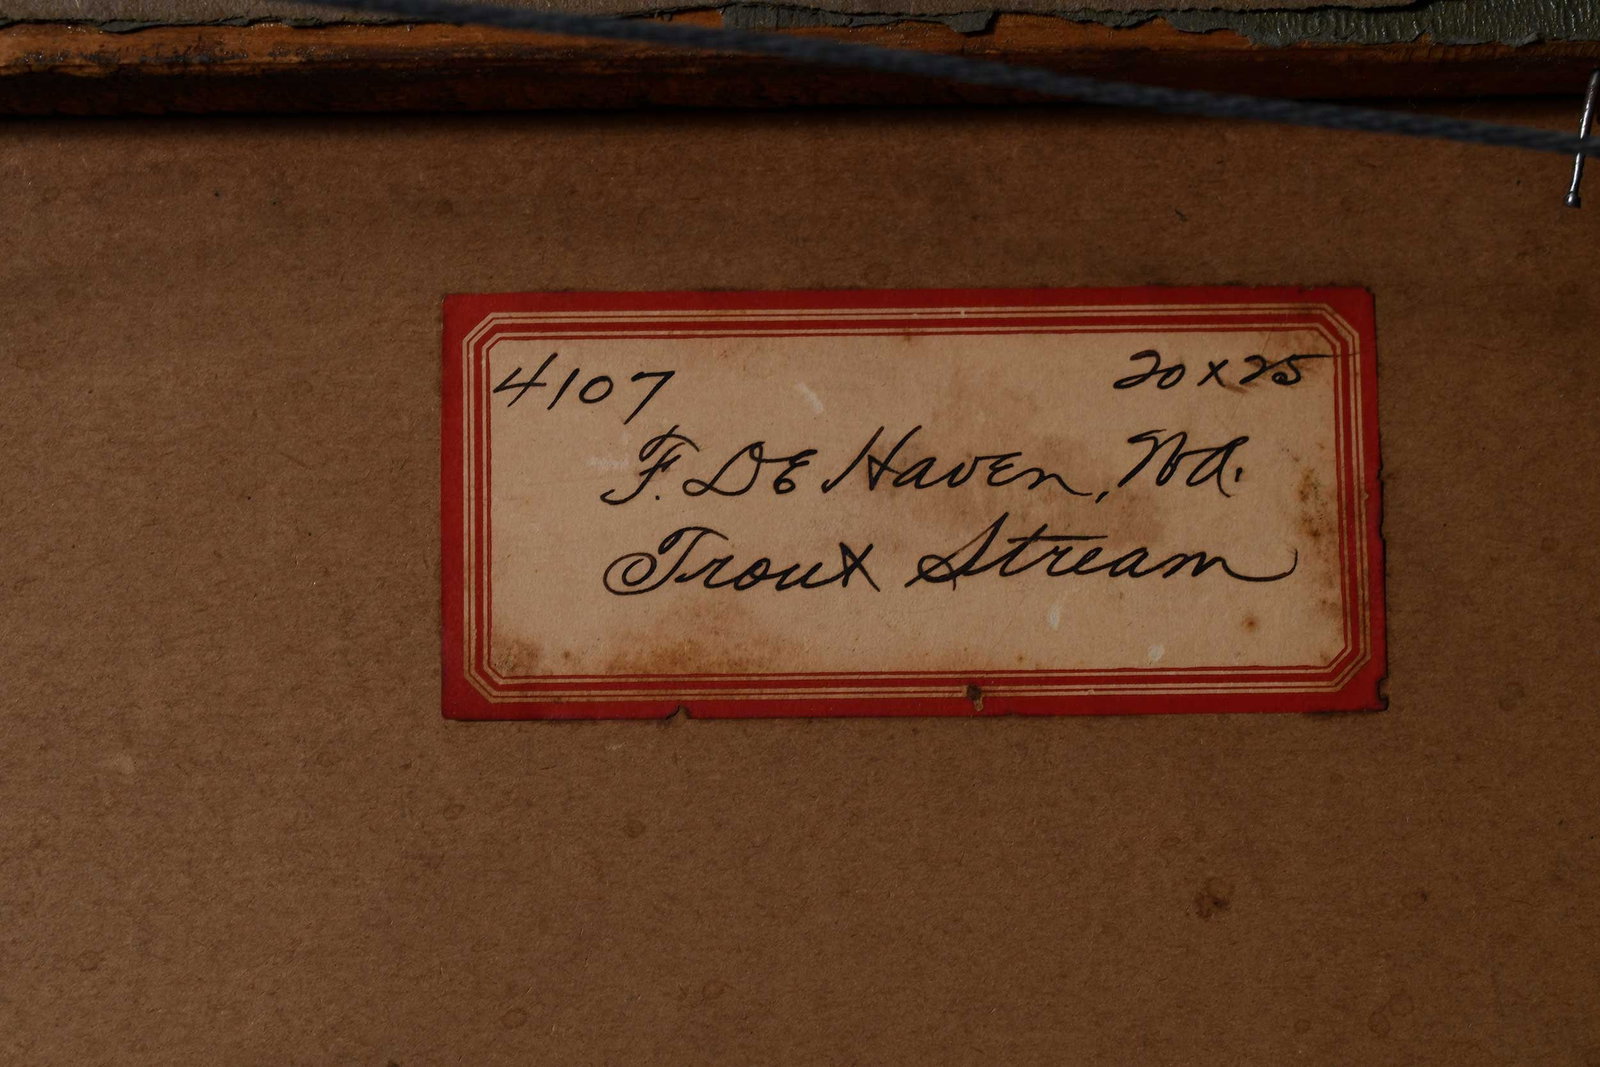 4107 20x25
F. De Haven, Na.
Trout Stream